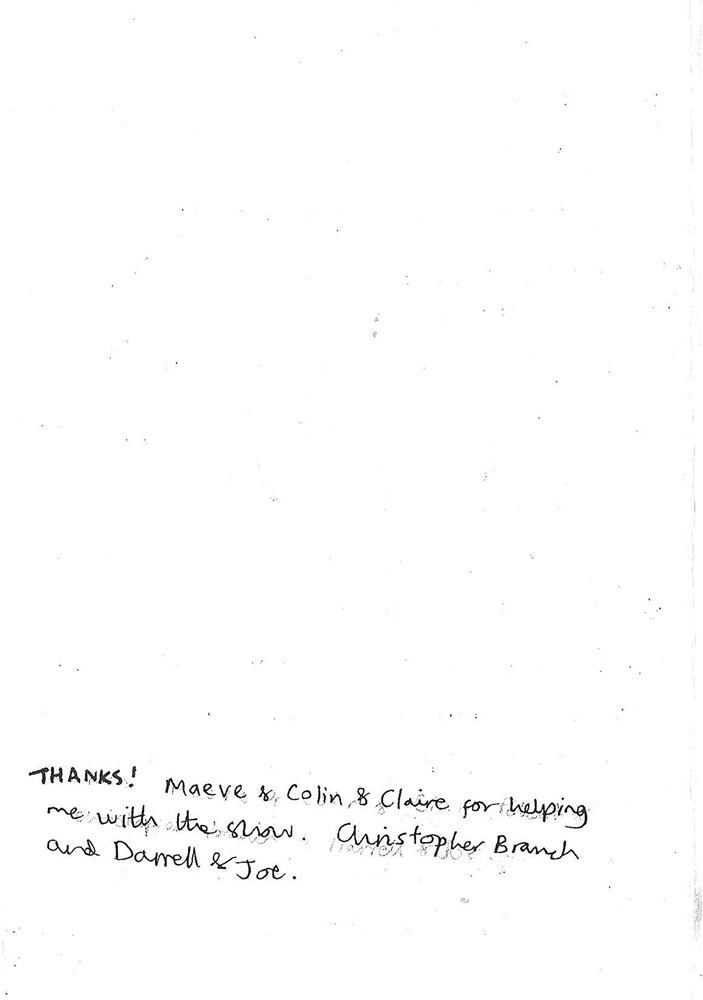 THANKS! Maeve & Colin & Claire for helping
me with the show. Christopher Branch
and Darrell & Joe.